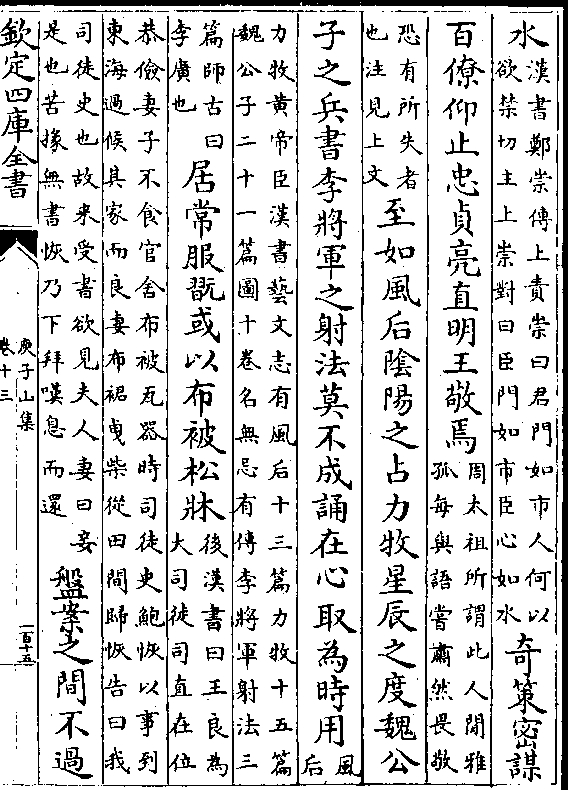 水
漢書鄭崇傳上責崇曰君門如市人何以
欲禁切主上崇對曰臣門如市臣心如水
奇策密謀
百僚仰止忠貞亮直明王敬焉
周太祖所謂此人閒雅
孤每與語嘗肅然畏敬
恐有所失者
也注見上文
至如風后陰陽之占力牧星辰之度魏公
子之兵書李將軍之射法莫不成誦在心取為時用
風
后
力牧黃帝臣漢書藝文志有風后十三篇力牧十五篇
魏公子二十一篇圖十卷名無忌有傳李將軍射法三
篇師古曰
李廣也
居常服翫或以布被松牀
後漢書曰王良為
大司徒司直在位
恭儉妻子不食官舍布被瓦器時司徒史鮑恢以事到
東海過候其家而良妻布裙曳柴從田間歸恢告曰我
司徒史也故來受書欲見夫人妻曰妾
是也苦掾無書恢乃下拜嘆息而還
盤案之間不過
欽定四庫全書
庾子山集
卷十三
一百十五